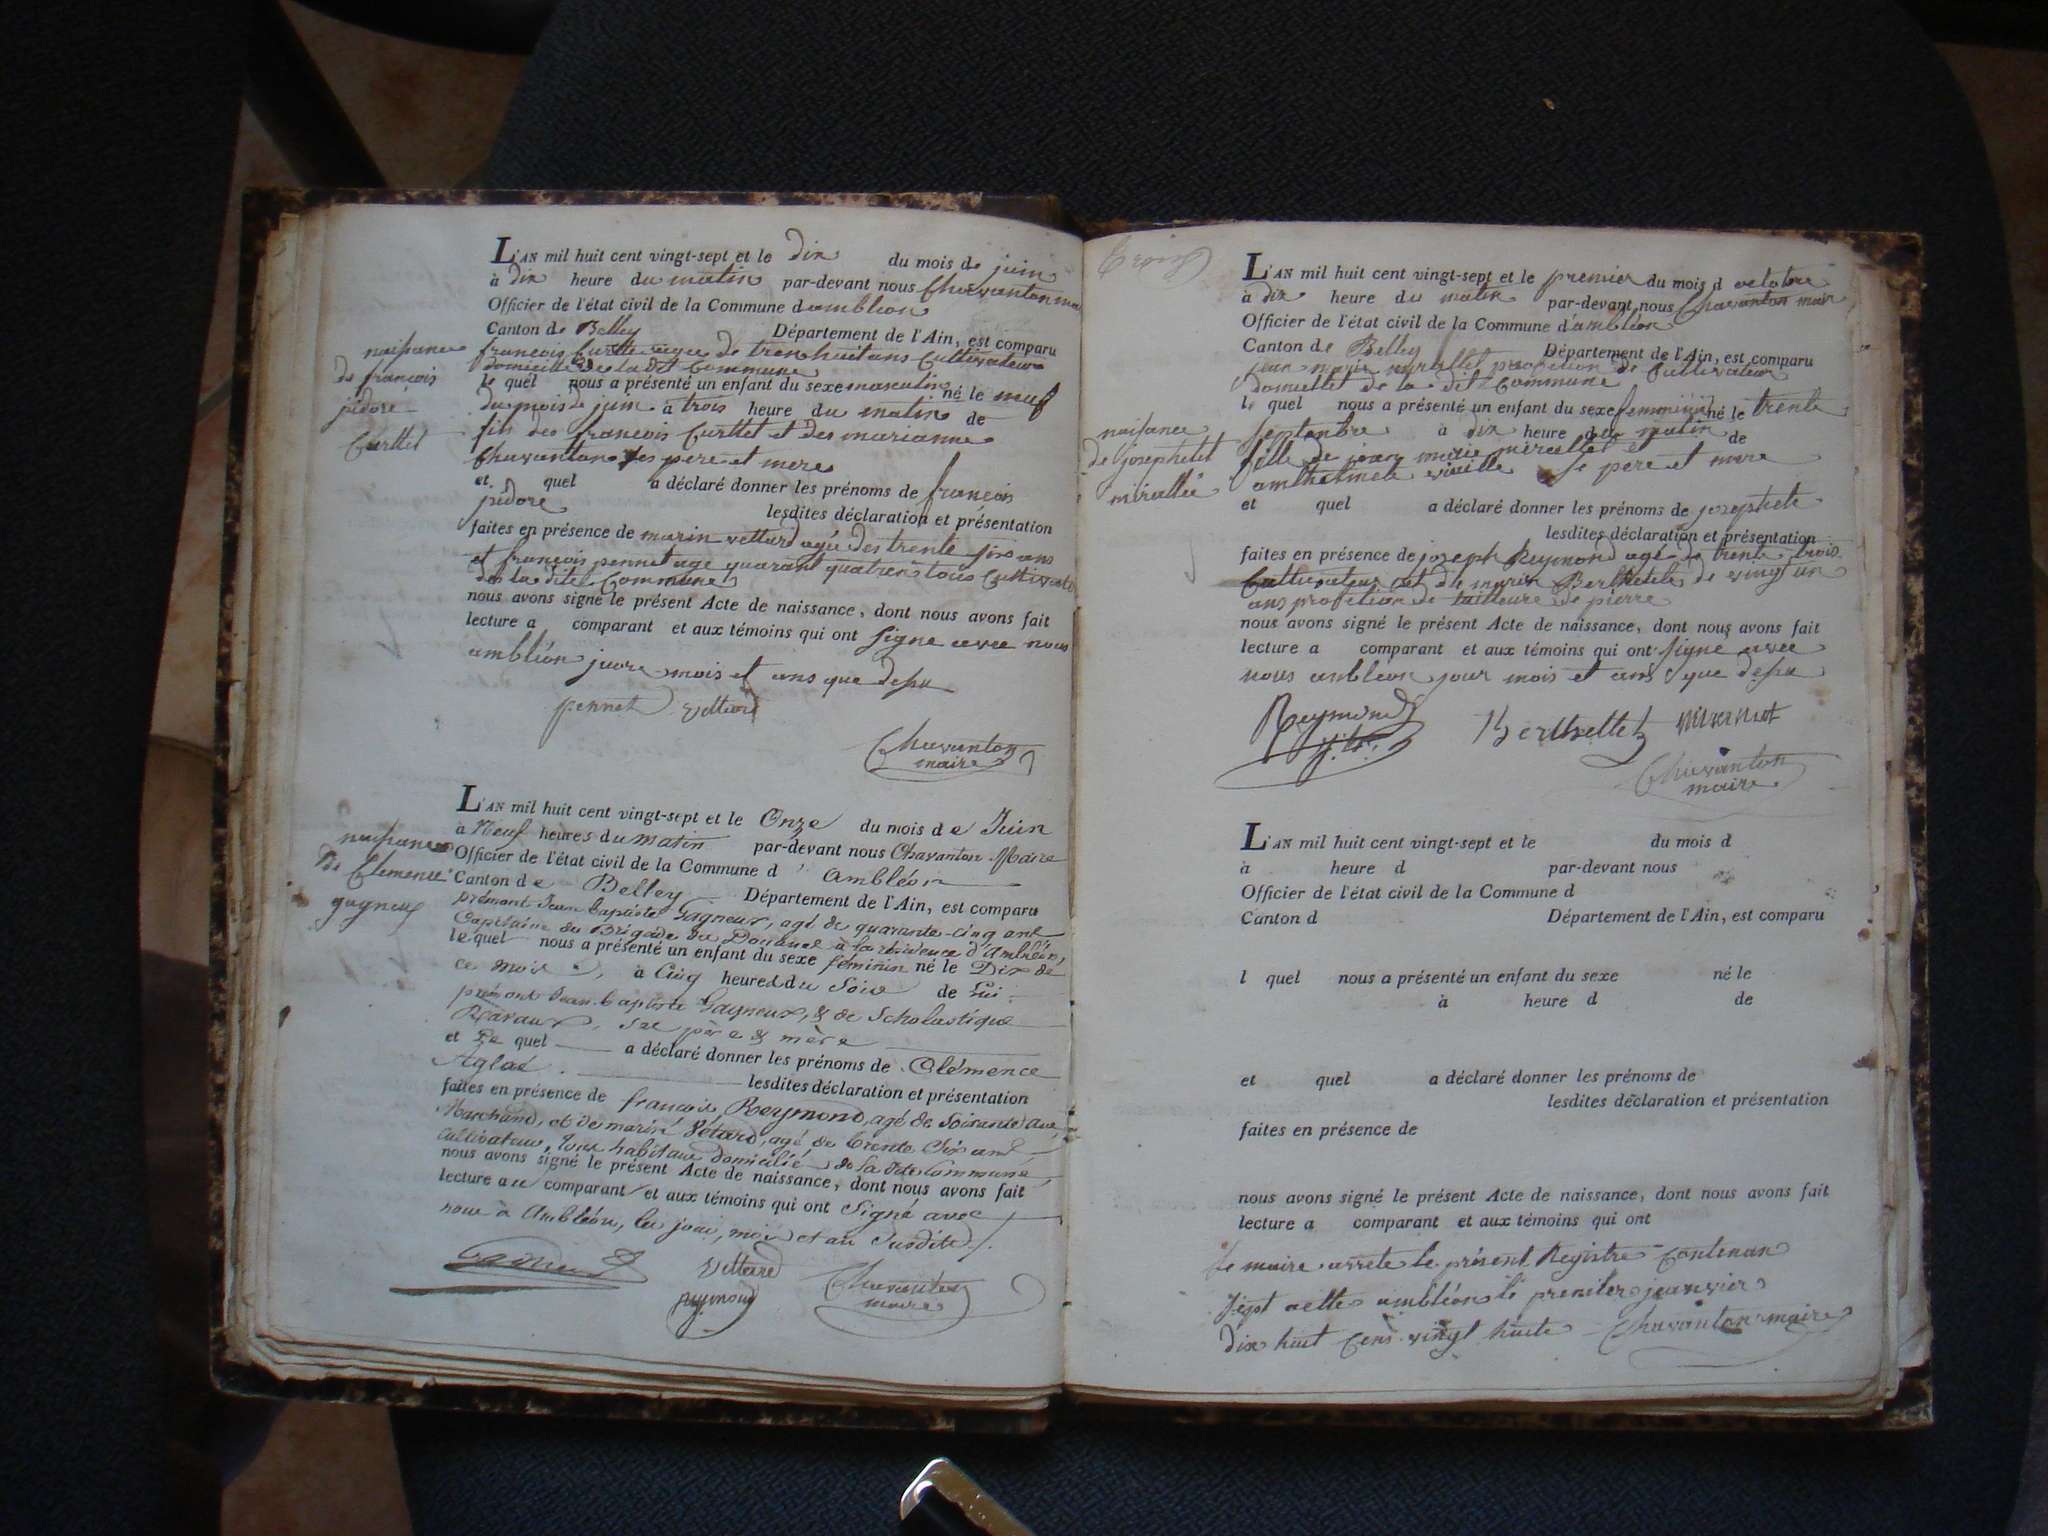 L'AN mil huit cent vingt-sept et le dix du mois de juin
à dix heure du matin par-devant nous Chavanton mai
Officier de l'état civil de la Commune d ambléon
Canton de Belley Département de l'Ain, est comparu
françois Curttet agee de tren huit ans Cultivateur
domicillié de la dit Commune
le quel nous a présenté un enfant du sexe masculin né le neuf
du mois de juin à trois heure du matin de
fils des françois Curttet et des marianne
Chavanton ses pere et mere
et quel a déclaré donner les prénoms de françois
jsidore lesdites déclaration et présentation
faites en présence de marin vettard agée des trente six ans
et françois pennet age quarant quatren tous Cultivate
des la dite Commune
nous avons signé le présent Acte de naissance, dont nous avons fait
lecture a comparant et aux témoins qui ont signe avec nous
ambléon juore mois et ans que desu
pennet vettard
Chavanton
maire
naisance
de françois
jsidore
Curttet
L'AN mil huit cent vingt-sept et le Onze du mois de Juin
à Neuf heures du matin par-devant nous Chavanton Maire
Officier de l'état civil de la Commune d' Ambléon
Canton de Belley Département de l'Ain, est comparu
prémont Jean Baptiste Gagneux, agé de quarante-cinq ans
Capitaine de Brigade des Douanes à la résidence d'Ambléon,
le quel nous a présenté un enfant du sexe féminin né le Dix de
ce mois, à Cinq heures du Soir de Lui
prémont Jean-baptiste Gagneux, & de Scholastique
Ravaux, ses père & mère
et Le quel a déclaré donner les prénoms de Clémence
Aglaé lesdites déclaration et présentation
faites en présence de françois Reymond, agé de Soixante ans,
Marchand, et de marin Vétard, agé de trente Six ans
cultivateur, tous habitans domiciliés de la dite Commune,
nous avons signé le présent Acte de naissance, dont nous avons fait
lecture au comparant et aux témoins qui ont Signé avec
nous à Ambléon, les jour, mois et an Susdits.
Gagneux vettard
reymond
Chavanton
maire
naisance
de Clemence
gagneux
L'AN mil huit cent vingt-sept et le premier du mois d octobre
à dix heure du matin par-devant nous Chavanton mair
Officier de l'état civil de la Commune d'ambléon
Canton de Belley Département de l'Ain, est comparu
jean marie mirallet profetion de Cultivateur
domicillet de la dite Commune
le quel nous a présenté un enfant du sexe femminin né le trente
septenbre à dix heure du matin de
fille de jean marie mirallet et
amthelmete vieille se pere et mere
et quel a déclaré donner les prénoms de josephete
lesdites déclaration et présentation
faites en présence de joseph Reymond age de trente trois
Cultivateur et de marin Berthelet de vingt un
ans profetion de tailleure de pierre
nous avons signé le présent Acte de naissance, dont nous avons fait
lecture a comparant et aux témoins qui ont signé avec
nous ambleon jour mois et ans que desu
Reymond Berthellet
Chavanton
maire
naisance
de josephetet
mirallée
L'AN mil huit cent vingt-sept et le du mois d
à heure d par-devant nous
Officier de l'état civil de la Commune d
Canton d Département de l'Ain, est comparu
l quel nous a présenté un enfant du sexe né le
à heure d de
et quel a déclaré donner les prénoms de
lesdites déclaration et présentation
faites en présence de
nous avons signé le présent Acte de naissance, dont nous avons fait
lecture a comparant et aux témoins qui ont
Le maire arrete le présent Registre Contenan
sept actte ambléon le premiler jeanvier
dix huit Cens vingt huite Chavanton maire